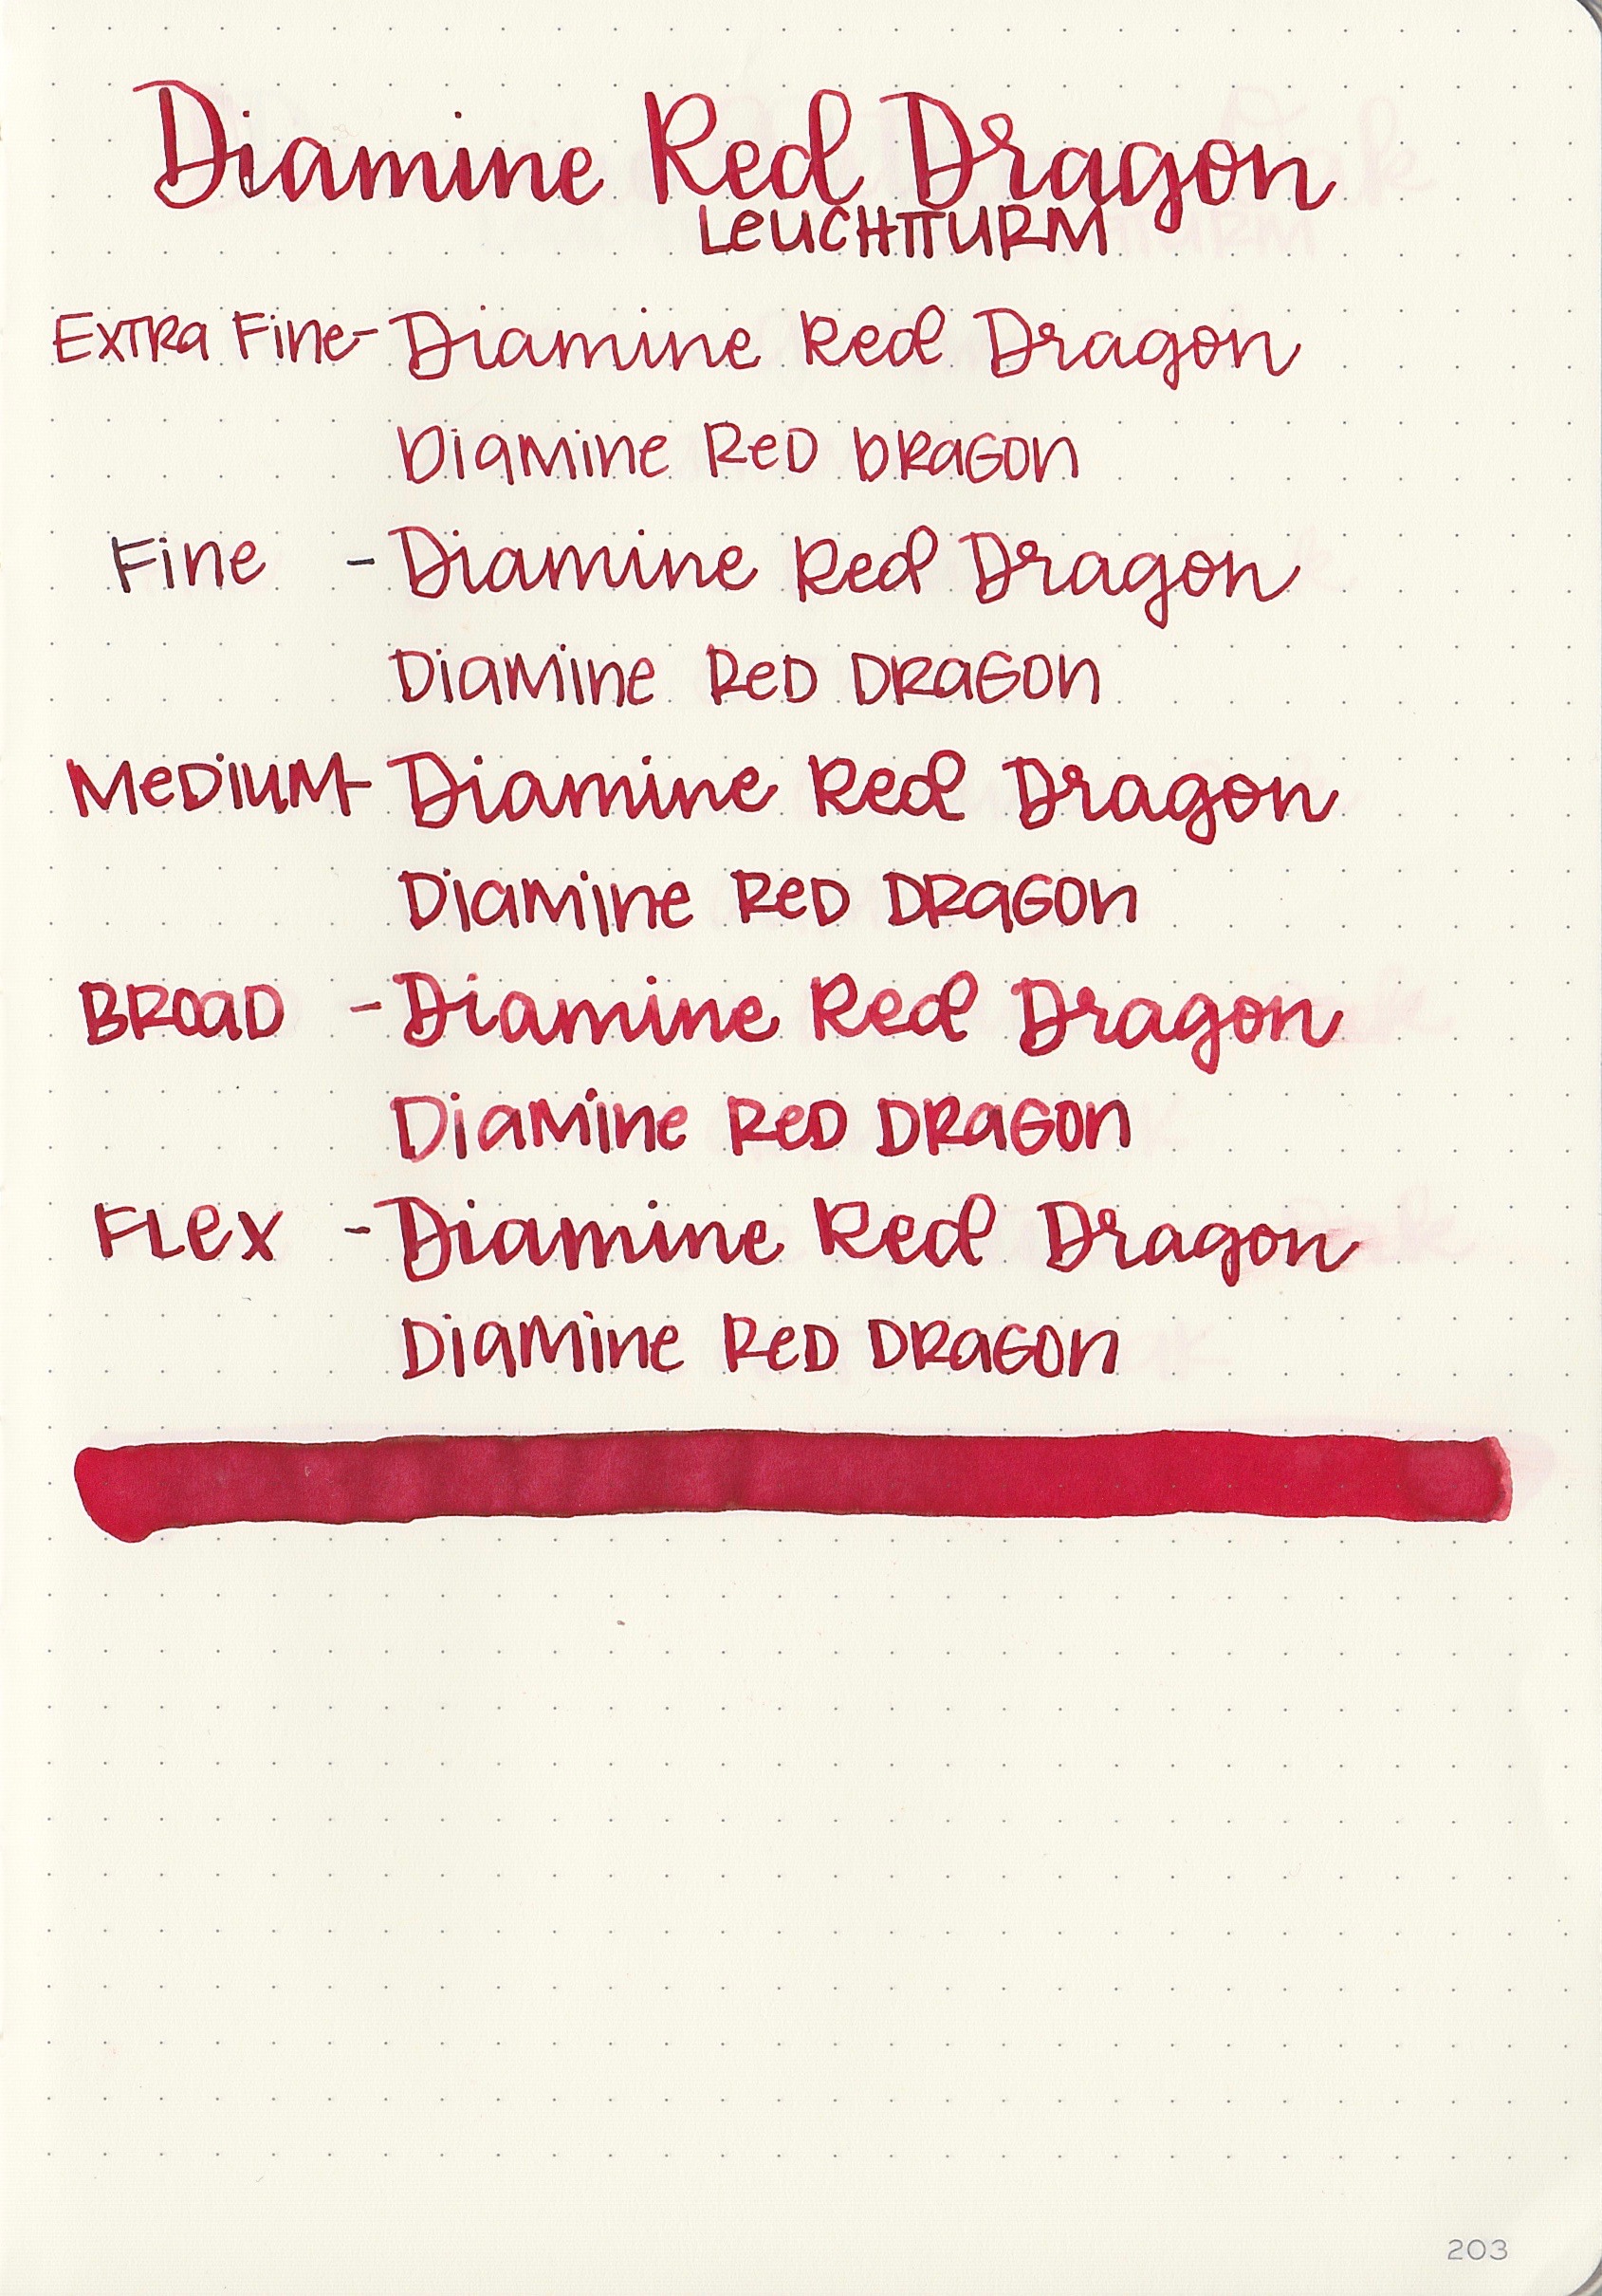 Diamine Red Dragon
LeUCHTTURM
ExTRa Fine- Diamine Red Dragon
DiaMine ReD DRaGon
Fine - Diamine Red Dragon
DiaMine ReD DRaGon
MeDiUM- Diamine Red Dragon
DiaMine ReD DRaGon
BRoaD - Diamine Red Dragon
DiaMine ReD DRaGon
FLex - Diamine Red Dragon
DiaMine ReD DRaGon
203